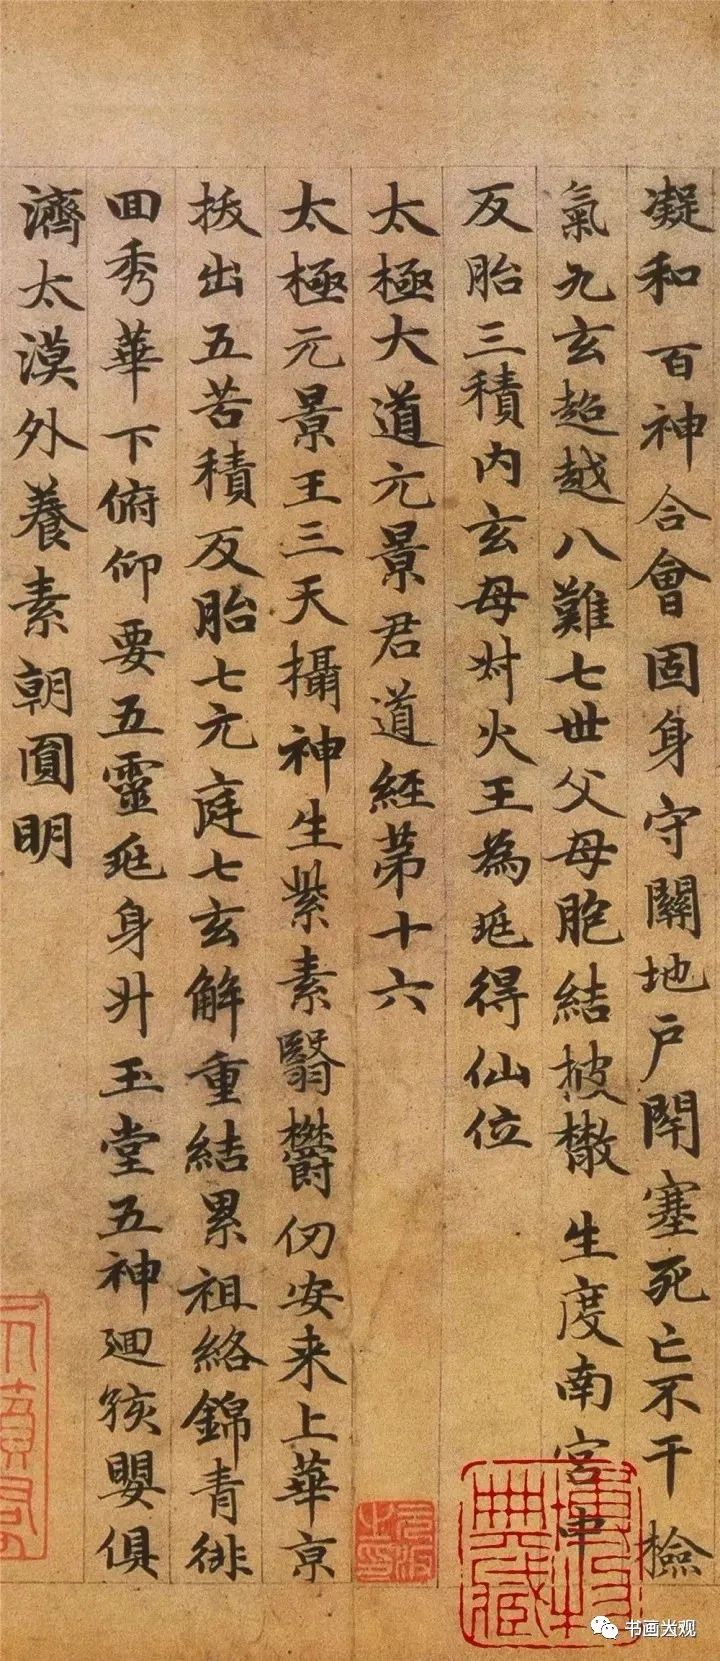 凝和百神合會固身守關地戶閇塞死亡不干撿
氣九玄超越八難七世父母胞結披散生度南宮中
反胎三積內玄母对火王為延得仙位
太極大道元景君道經苐十六
太極元景王三天攝神生紫素翳欝仞安来上華京
拔出五苦積反胎七元庭七玄解重結累祖絡錦青徘
囬秀華下俯仰要五靈延身升玉堂五神迴孩嬰俱
濟太漠外養素朝圓明
博物
典藏
书画岜观